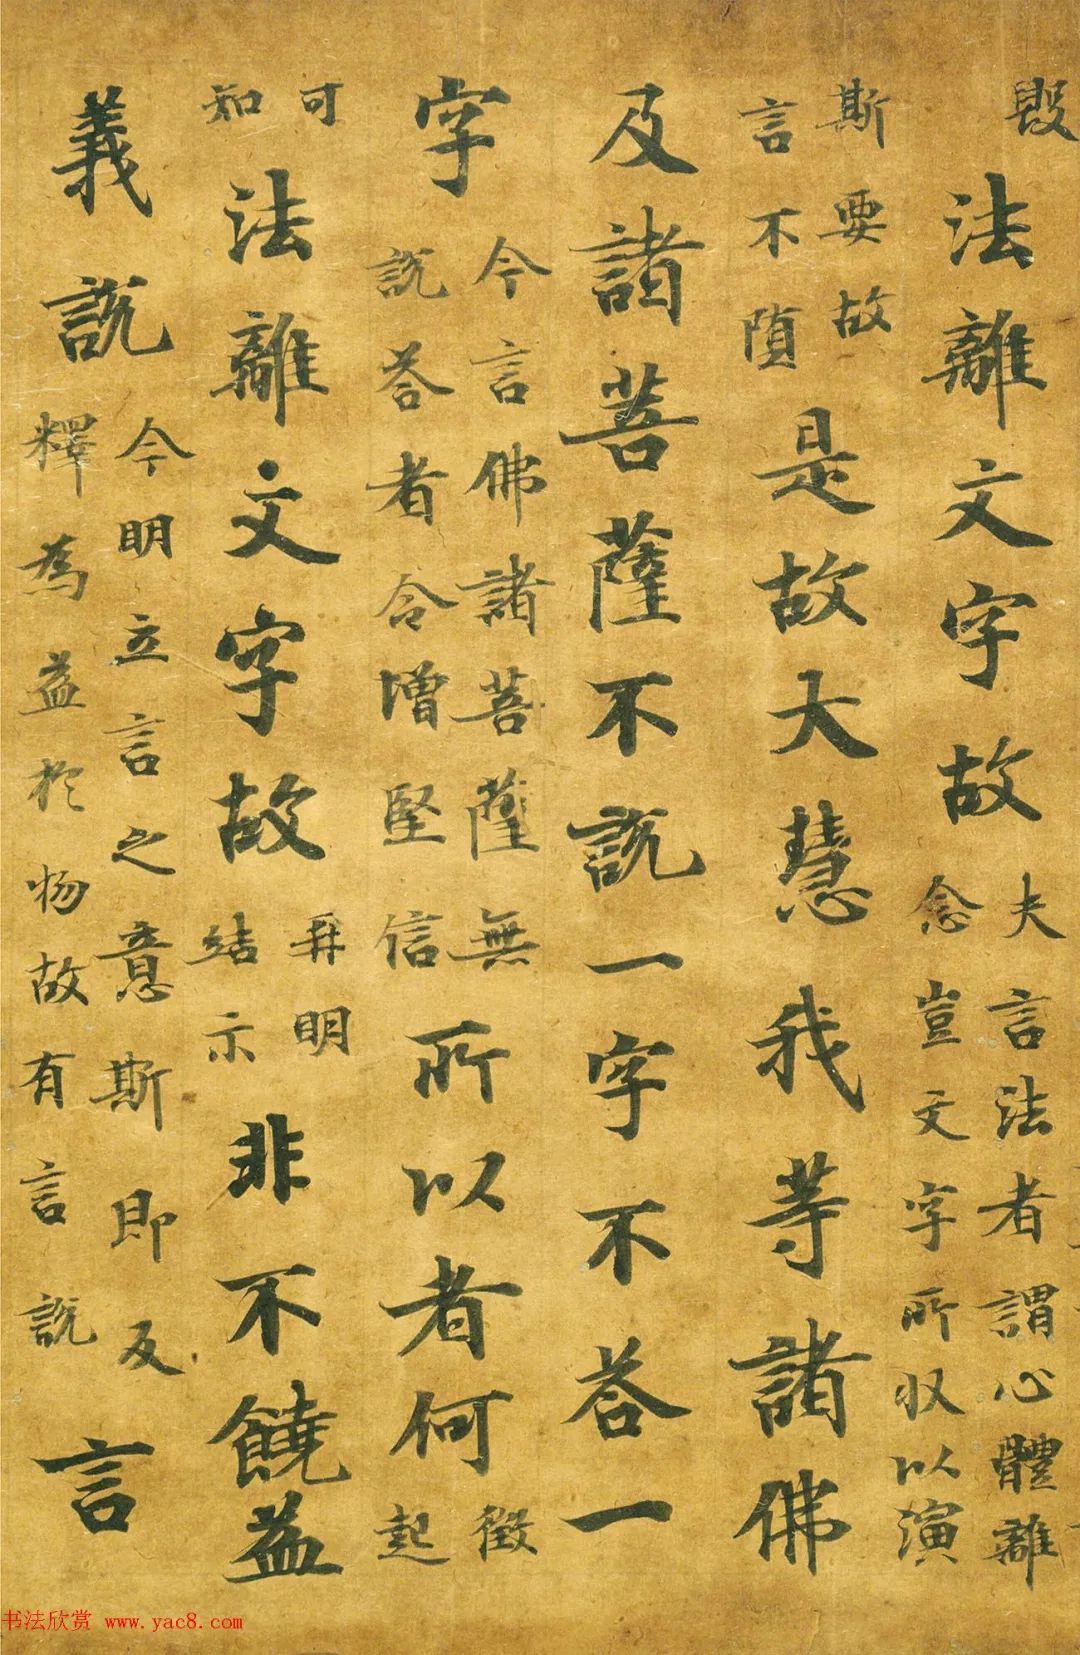 毀
法離文字故
夫言法者謂心體離
念豈文字所収以演
斯要故
言不隕
是故大慧我等諸佛
及諸菩薩不說一字不荅一
字
今言佛諸菩薩無
說荅者令增堅信
所以者何
徵
起
可
知
法離文字故
再明
結示
非不饒益
義說
今明立言之意斯即及
釋為益於物故有言說
言
书法欣赏 www.yac8.com